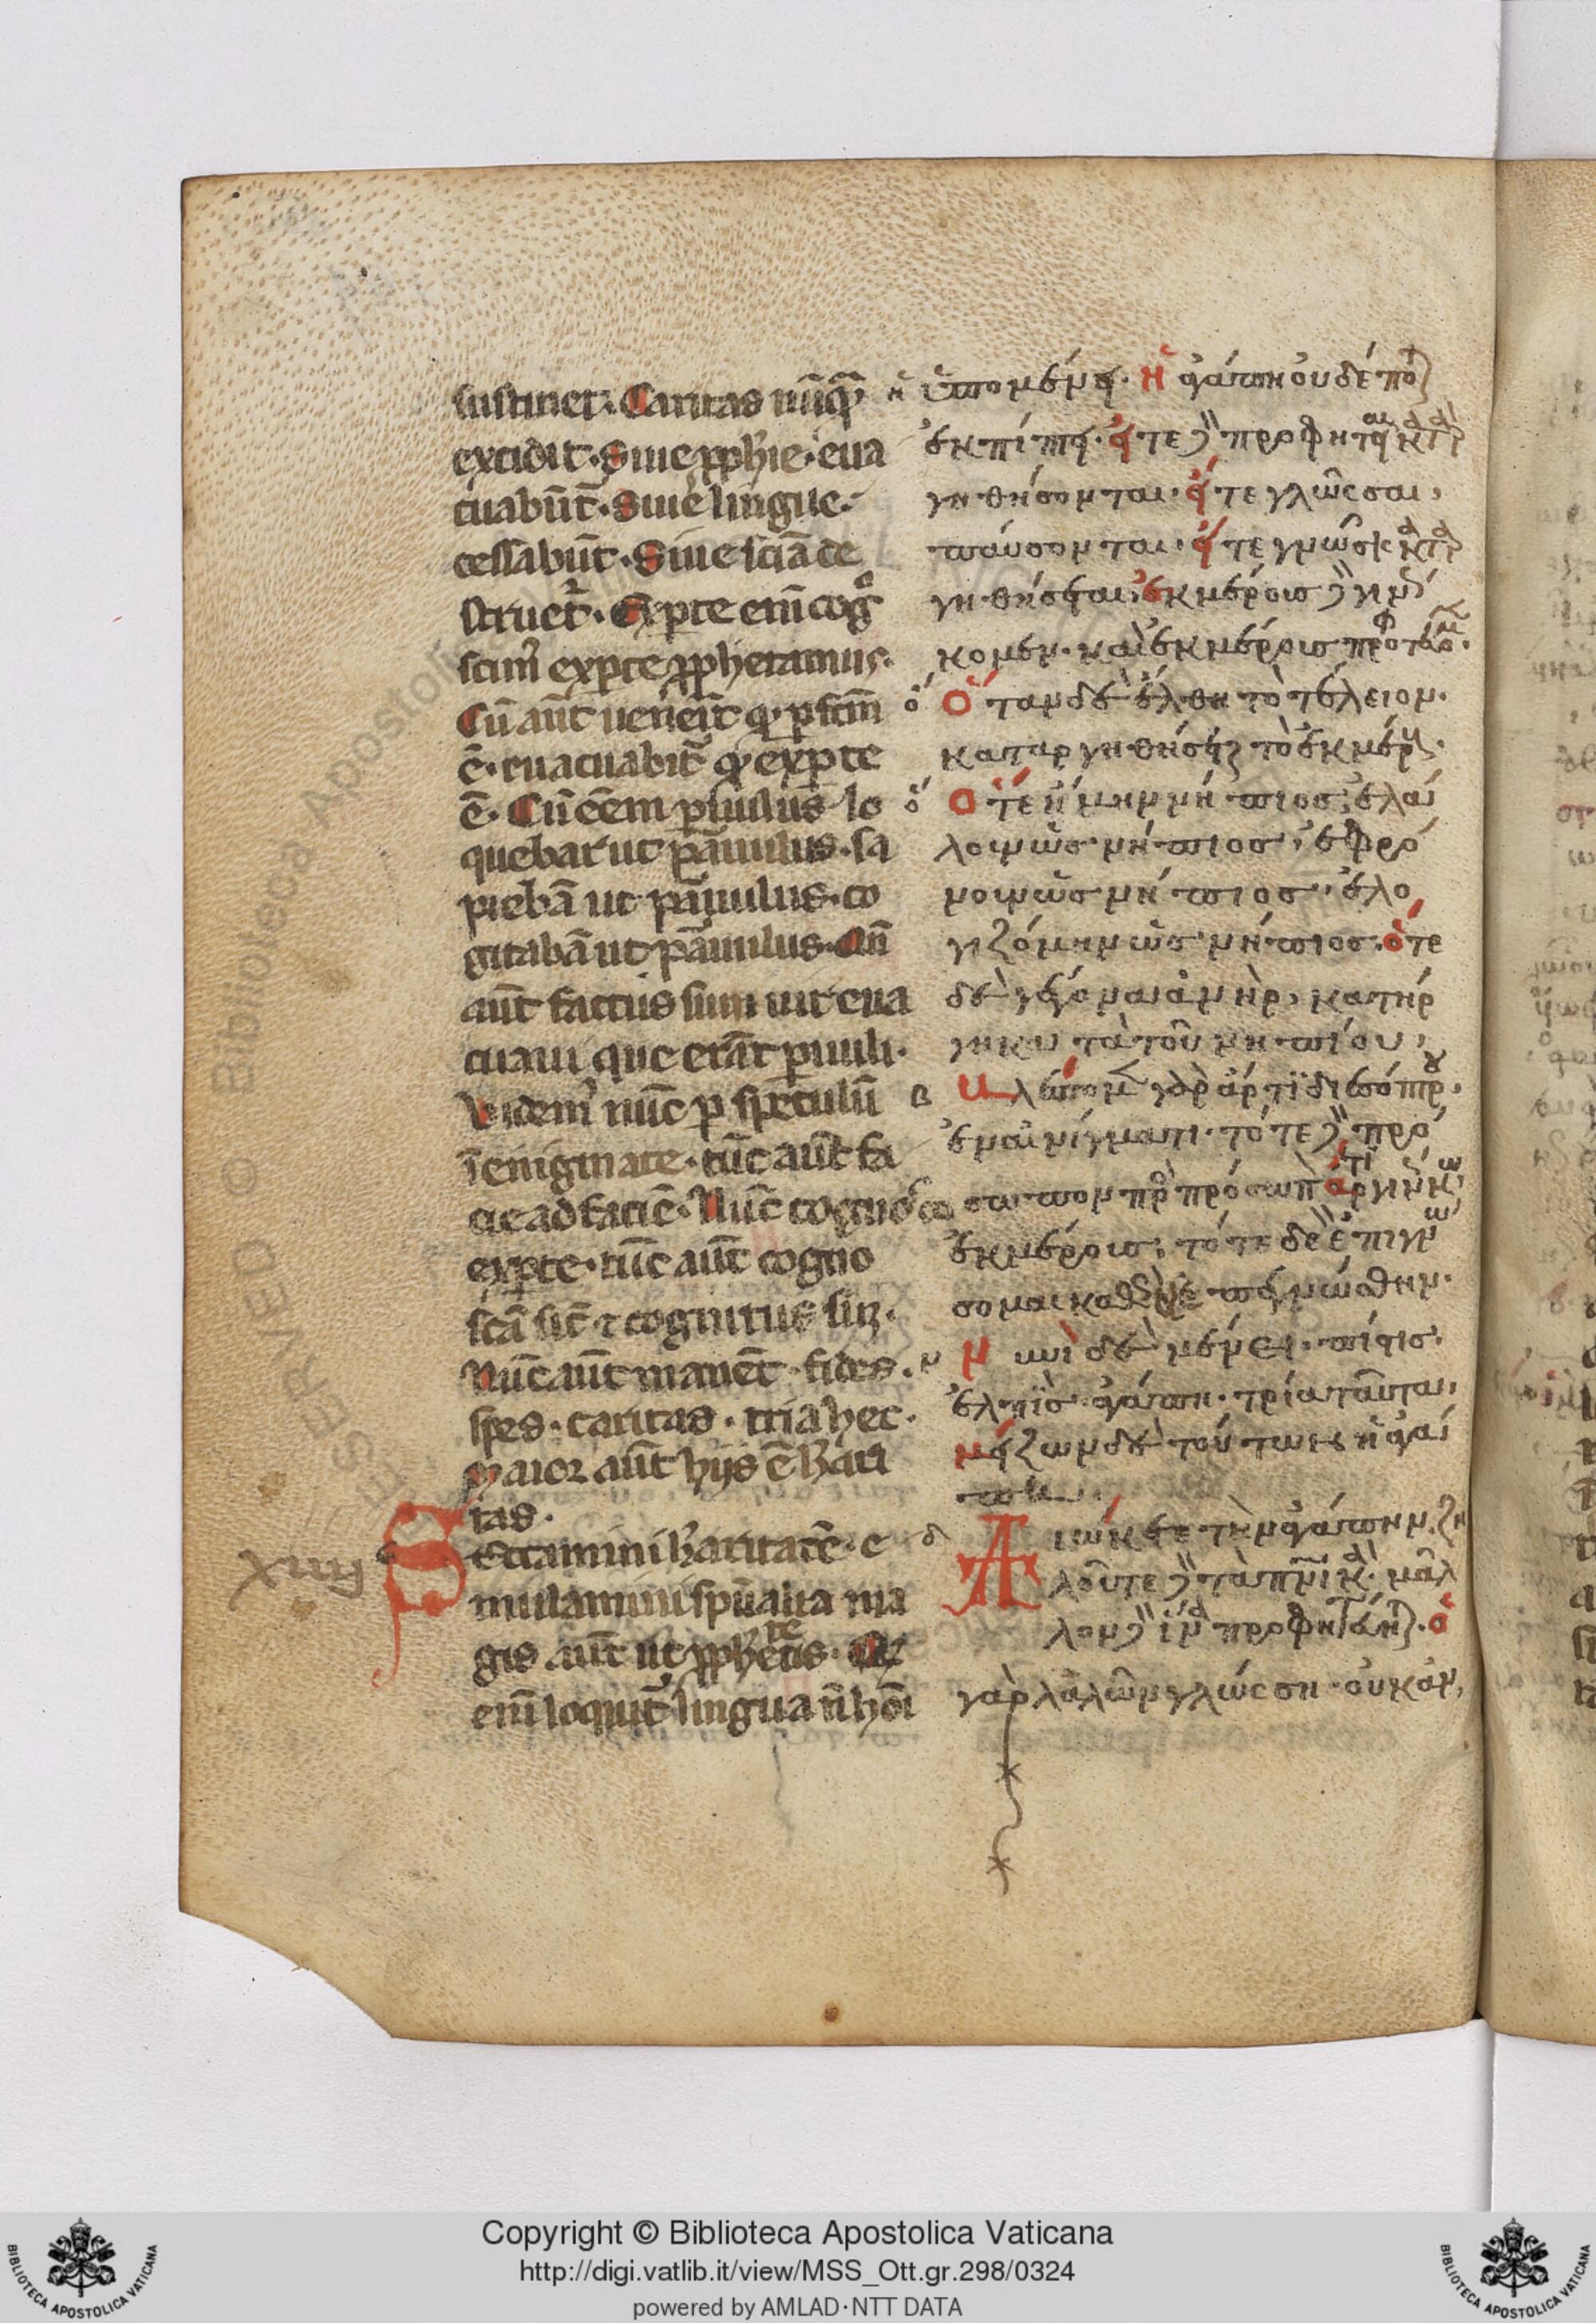 sustinet. Caritas nūq̄
excidit. Siue ꝓph̄ie. eua
cuabūt᷑. Siue lingue.
cessabūt. Siue sciā de
struet᷑. Ex ꝑte em̄ cogͦ
scimꝰ ex ꝑte ꝓphetamus.
Cū aūt ueneīt q̄ ꝑfcm̄
ē. euacuabit᷑ q̄ ex ꝑte
ē. Cū eēm ꝑuulus lo
quebar ut paruulus. sa
piebā ut paruulus. co
gitabā ut paruulus. Qn̄
aūt factus sum uir eua
cuaui que erāt ꝑuuli.
Videmꝰ nūc ꝑ speculū
ī enigmate. tūc aūt fa
cie ad faciē. Nūc cognosco
ex ꝑte. tūc aūt cogno
scā sic̄ ⁊ cognitus sum.
Nūc aūt manēt fides.
spes. caritas. tria hec.
Maior aūt hijs ē kari
tas.
xiiij Sectamini karitatē. e
mulamini spūalia ma
gis aūt ut ꝓphetetis. Qi
em̄ loquit᷑ lingua n̄ hoī
ὑπομένει. ἡ ἀγάπη οὐδέποτε
ἐκπίπτει. εἴτε δὲ προφητεῖαι καταρ
γηθήσονται. εἴτε γλῶσσαι,
παύσονται. εἴτε γνῶσις καταρ
γηθήσεται. ἐκ μέρους δὲ γινώσ
κομεν. καὶ ἐκ μέρους προφητεύομεν.
ὅταν δὲ ἔλθη τὸ τέλειον.
καταργηθήσεται τὸ ἐκ μέρους.
Ὅτε ἤμην νήπιος, ἐλά
λουν ὡς νήπιος, ἐφρό
νουν ὡς νήπιος, ἐλο
γιζόμην ὡς νήπιος. ὅτε
δὲ γέγονα ἀνὴρ, κατήρ
γηκα τὰ τοῦ νηπίου,
βλέπομεν γὰρ ἄρτι δι' ἐσόπτρου.
ἐν αἰνίγματι. τότε δὲ πρό
σωπον πρὸς πρόσωπον ἄρτι γινώσκω
ἐκ μέρους, τότε δὲ ἐπιγνώ
σομαι καθὼς καὶ ἐπεγνώσθην.
νυνὶ δὲ μένει. πίστις.
ἐλπὶς ἀγάπη. τρία ταῦτα,
μείζων δὲ τούτων ἡ ἀγά
πη.
Διώκετε τὴν ἀγάπην. ζη
λοῦτε δὲ τὰ πνευματικά. μᾶλ
λον δὲ ἵνα προφητεύητε. ὁ
γὰρ λαλῶν γλώσση οὐκ ἀν
Copyright © Biblioteca Apostolica Vaticana
http://digi.vatlib.it/view/MSS_Ott.gr.298/0324
powered by AMLAD·NTT DATA